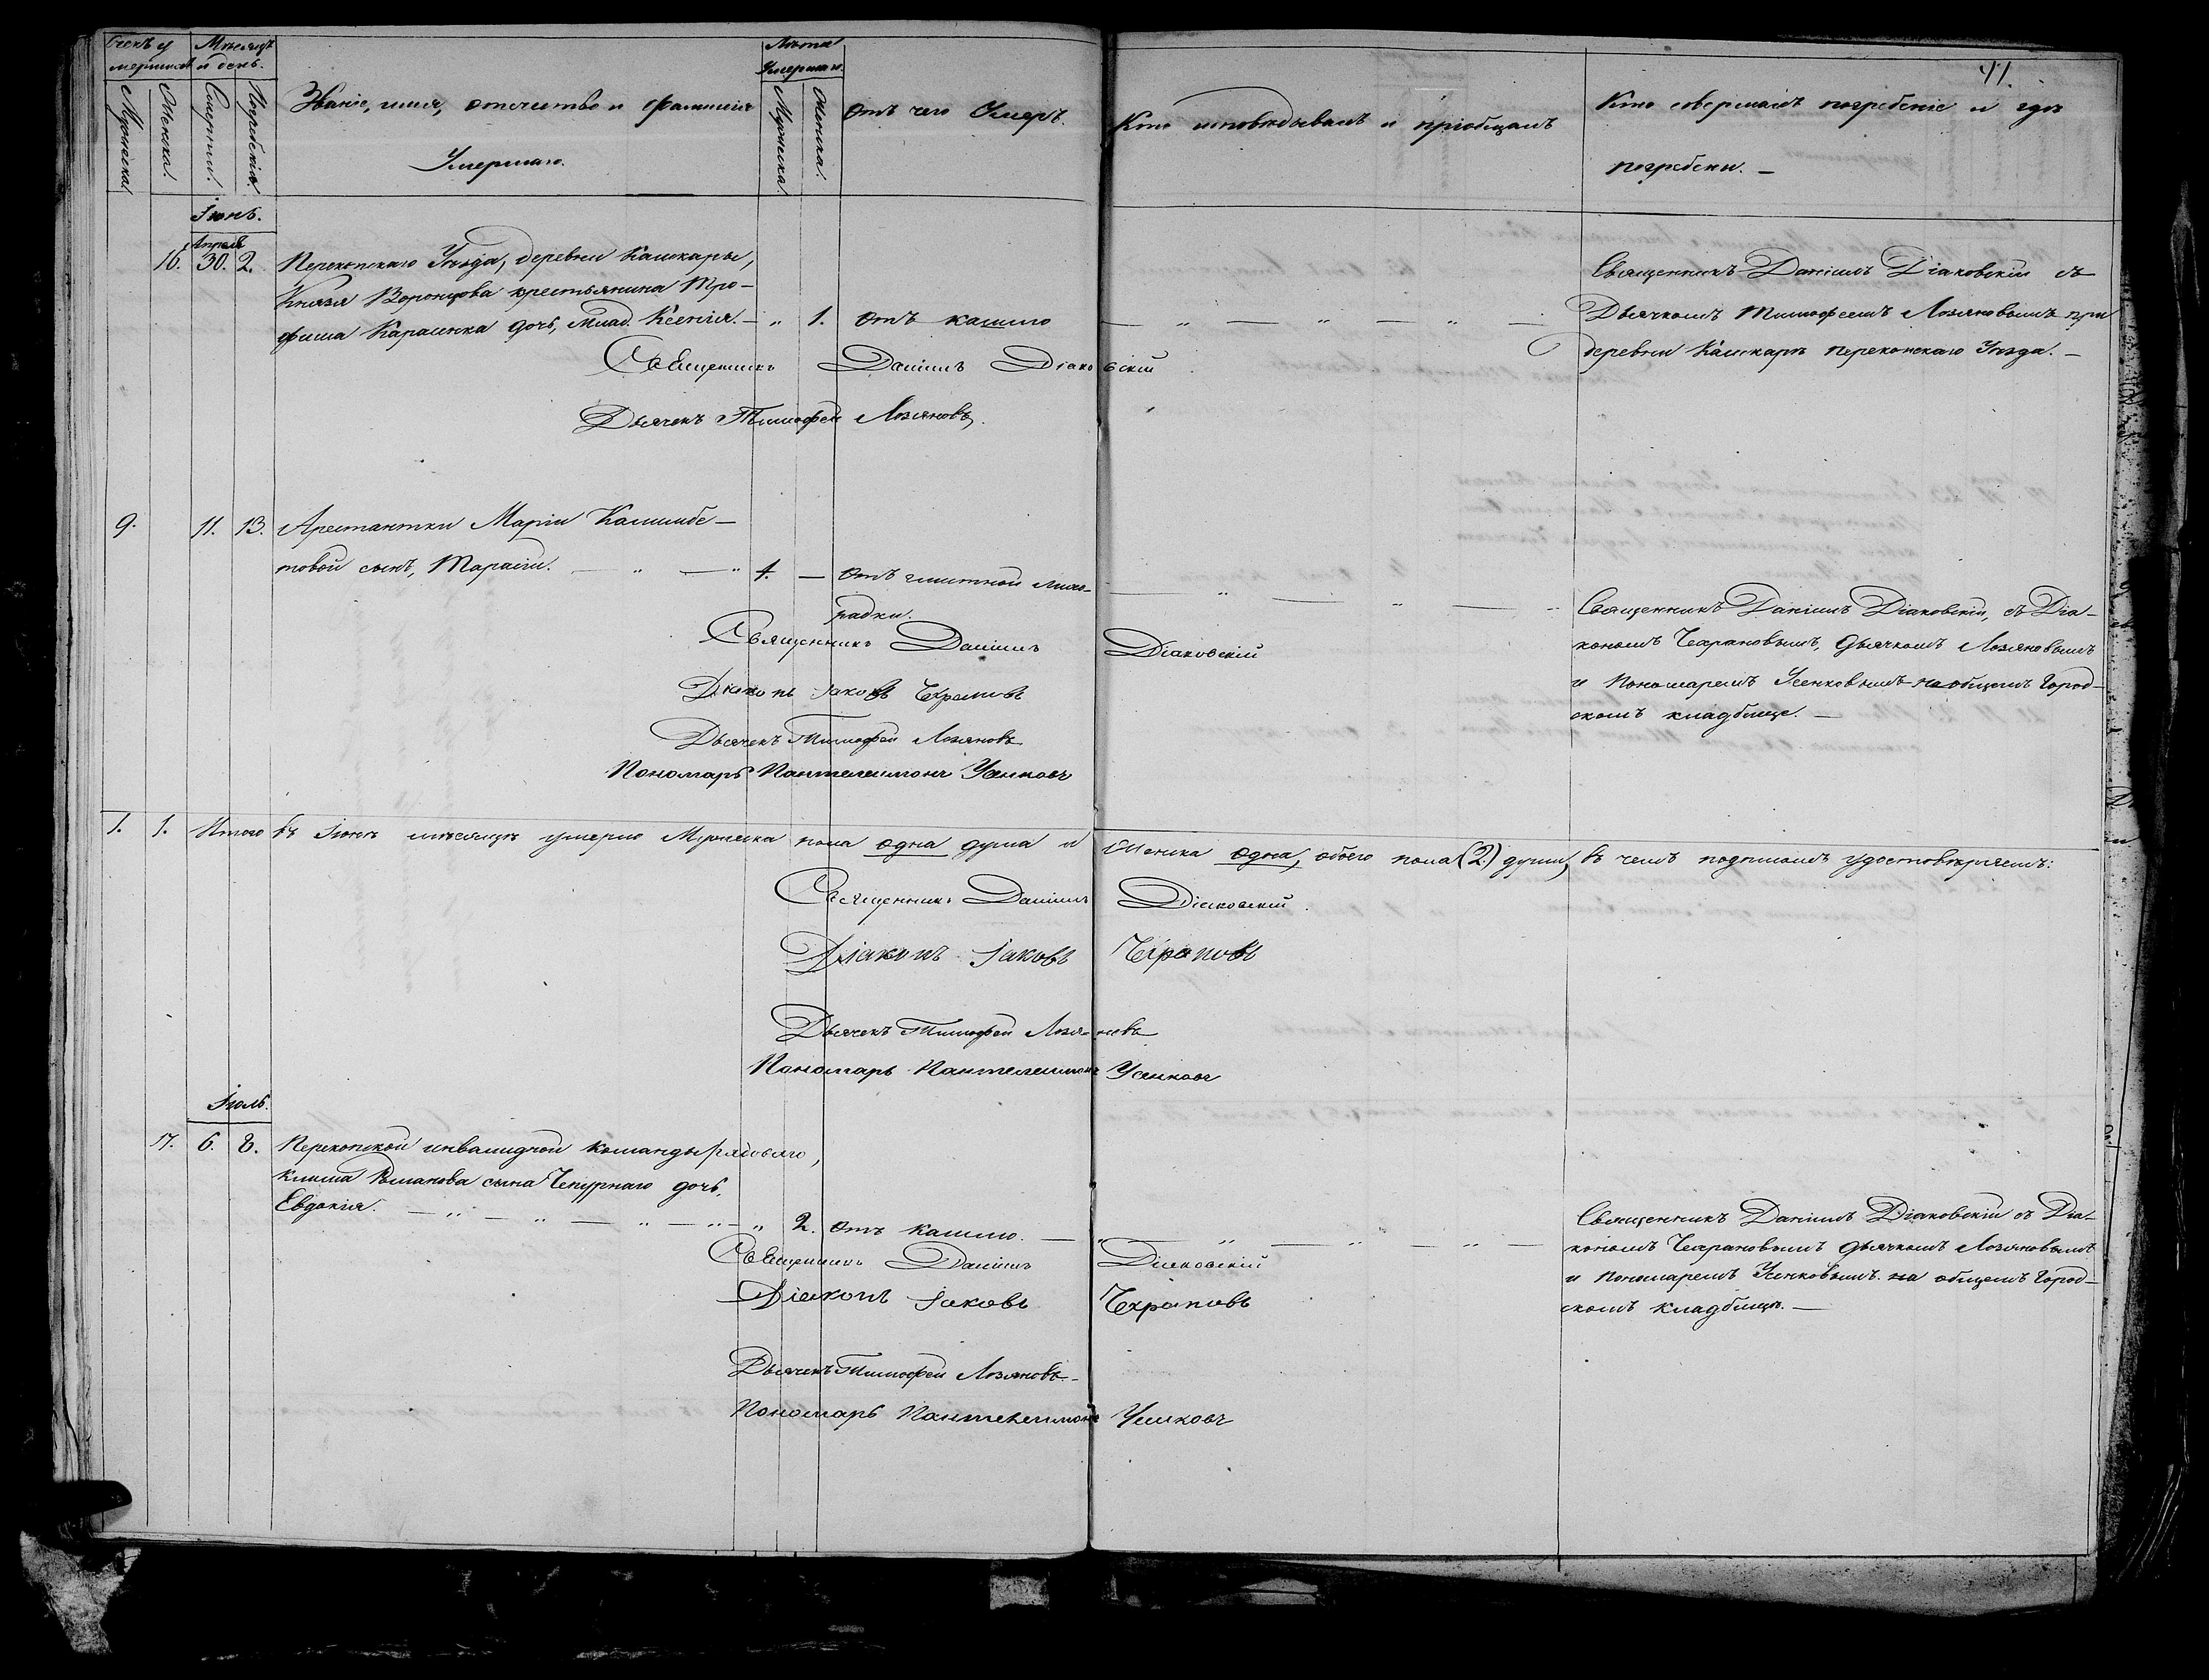 41.
Счетъ у
мершихъ
Мѣсяцъ
и день.
Лѣта
Умершаго.
Мужеска.
Женска.
Смерти.
Погребенія.
Званіе, имя, отечество и фамилія
Умершаго.
Мужеска.
Женска.
Отъ чего Умеръ.
Кто исповѣдывалъ и пріобщалъ
Кто совершалъ погребеніе и гдѣ
погребены. —
Іюнь.
Апреля
16. 30. 2. Перекопскаго Уѣзда, деревни Кашкары,
Князя Воронцова крестьянина Тро-
фима дочь, млад. Ксенія. — „ 1. Отъ кашлю
Священникъ Даніилъ Діаковскій съ
Дьячкомъ Тимофеемъ Лозяновымъ при
деревни Кашкаръ перекопскаго Уѣзда. —
Священникъ Даніилъ Діаковскій
Дьячекъ Тимофей Лозяновъ.
9. 11. 13. Арестантки Маріи
товой сынъ, Тарасій. — „ — „ 4. — Отъ лихо-
радки.
Священникъ Даніилъ Діаковскій, съ Діа-
кономъ Чехрановымъ, дьячкомъ Лозяновымъ
и Пономаремъ Усенковымъ на общемъ Город-
скомъ кладбище. —
Священникъ Даніилъ Діаковскій
Діаконъ Іаковъ Чехрановъ
Дьячекъ Тимофей Лозяновъ
Пономарь Пантелеимонъ Усенковъ
1. 1. Итого въ Іюнѣ мѣсяцѣ умерло Мужеска пола одна душа и Женска одна, обоего пола (2.) души, въ чемъ подписомъ удостовѣряемъ:
Священникъ Даніилъ Діаковскій.
Діаконъ Іаковъ Чехрановъ
Дьячекъ Тимофей Лозяновъ
Пономарь Пантелеимонъ Усенковъ
Іюль.
17. 6. 8. Перекопской инвалидной команды рядоваго,
Клима Романова сына Чепурнаго дочь,
Евдокія. — „ — „ — „ — „ — „ 2. Отъ кашлю. —
Священникъ Даніилъ Діаковскій съ Діа-
кономъ Чехрановымъ дьячкомъ Лозяновымъ
и Пономаремъ Усенковымъ на общемъ Город-
скомъ кладбищѣ. —
Священникъ Даніилъ Діаковскій
Діаконъ Іаковъ Чехрановъ
Дьячекъ Тимофей Лозяновъ.
Пономарь Пантелеимонъ Усенковъ